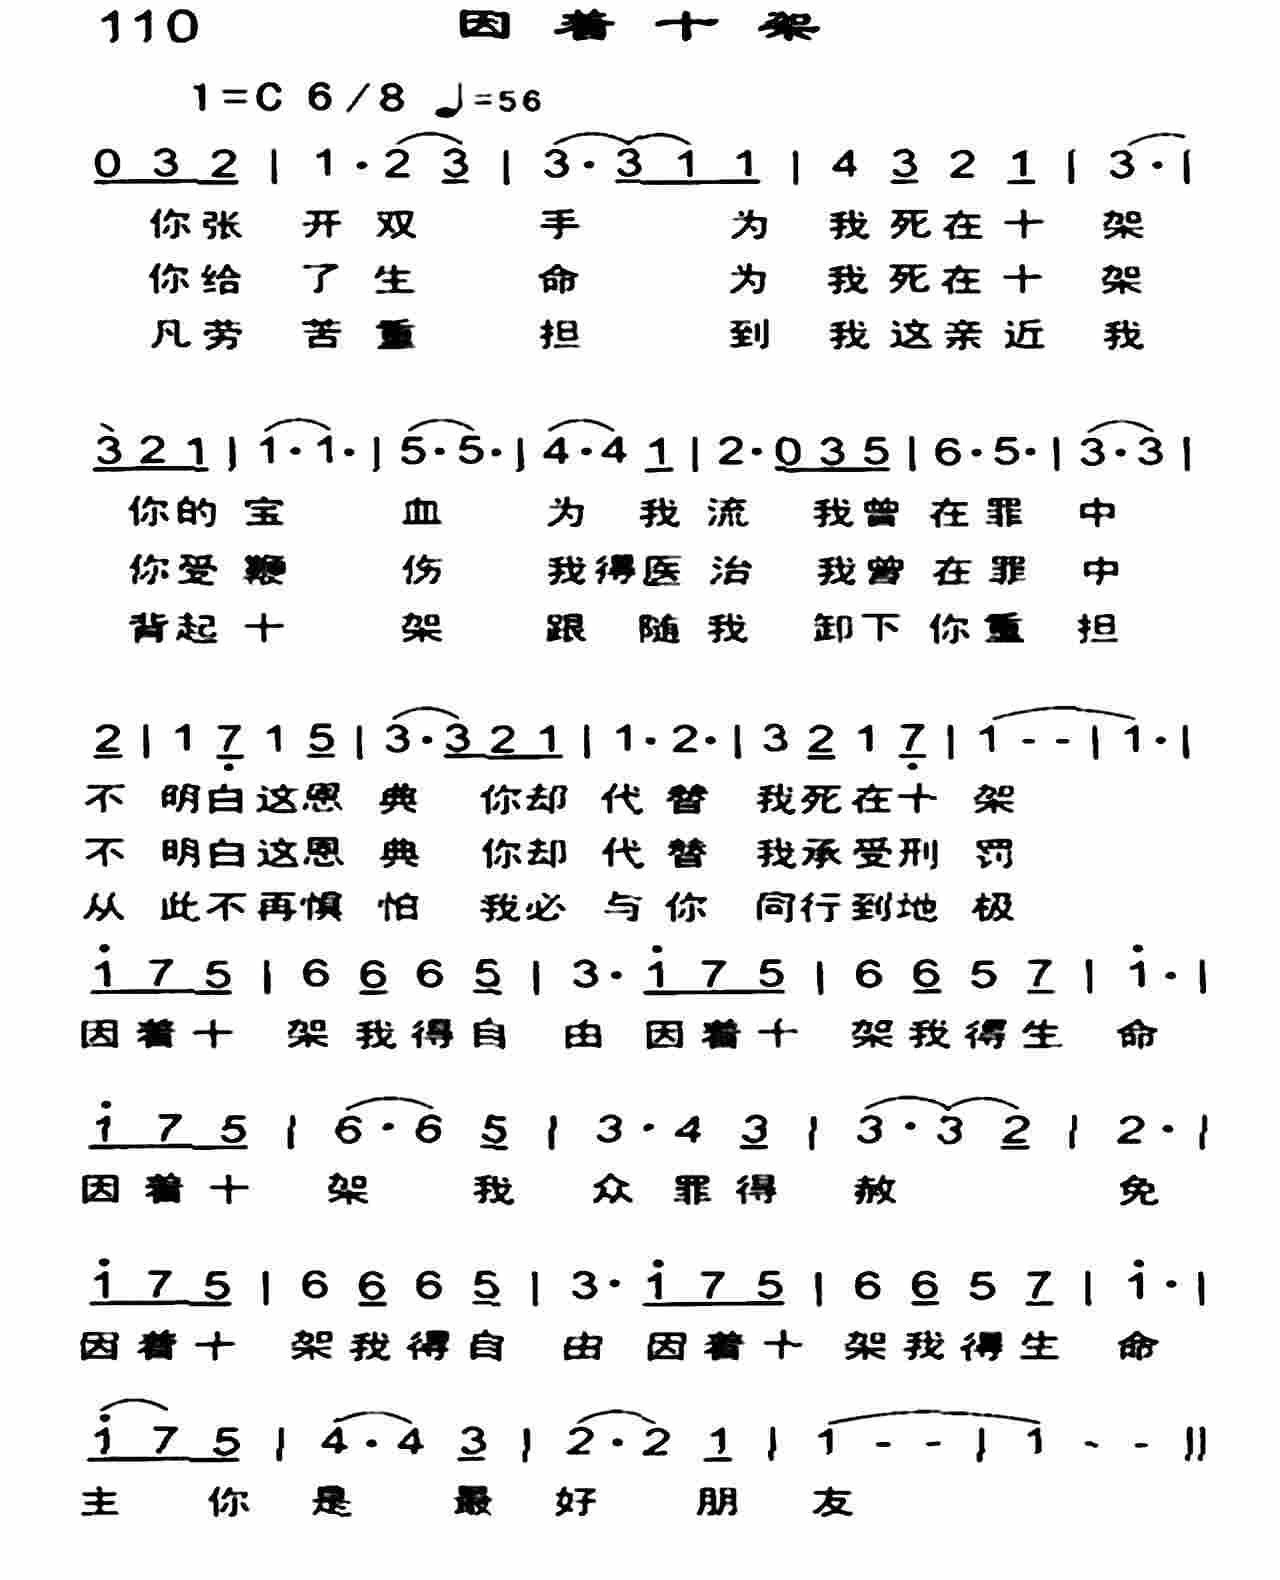 110 因着十架
1=C 6/8 ♩=56
0 3 2 | 1· 2 3 | 3· 3 1 1 | 4 3 2 1 | 3· |
你张开双手为我死在十架
你给了生命为我死在十架
凡劳苦重担到我这亲近我
3 2 1 | 1· 1· | 5· 5· | 4· 4 1 | 2· 0 3 5 | 6· 5· | 3· 3 |
你的宝血为我流我曾在罪中
你受鞭伤我得医治我曾在罪中
背起十架跟随我卸下你重担
2 | 1 7 1 5 | 3· 3 2 1 | 1· 2· | 3 2 1 7 | 1 - - | 1· |
不明白这恩典你却代替我死在十架
不明白这恩典你却代替我承受刑罚
从此不再惧怕我必与你同行到地极
1 7 5 | 6 6 6 5 | 3· 1 7 5 | 6 6 5 7 | 1· |
因着十架我得自由因着十架我得生命
1 7 5 | 6· 6 5 | 3· 4 3 | 3· 3 2 | 2· |
因着十架我众罪得赦免
1 7 5 | 6 6 6 5 | 3· 1 7 5 | 6 6 5 7 | 1· |
因着十架我得自由因着十架我得生命
1 7 5 | 4· 4 3 | 2· 2 1 | 1 - - | 1 - - ||
主你是最好朋友